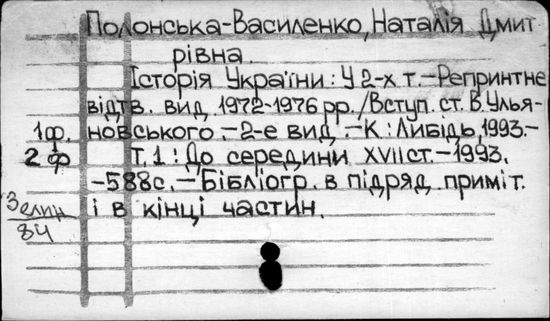 Полонська-Василенко, Наталія Дмит
рівна.
Історія України: У 2-х т.-Репринтне
відтв. вид. 1972-1976 рр./Вступ. ст. В. Улья-
1ф. новського.-2-е вид.-К.: Либідь, 1993.-
2ф Т.1: До середини XVII ст.-1993.
-588с.-Бібліогр. в підряд. приміт.
і в кінці частин.
Зелин
84